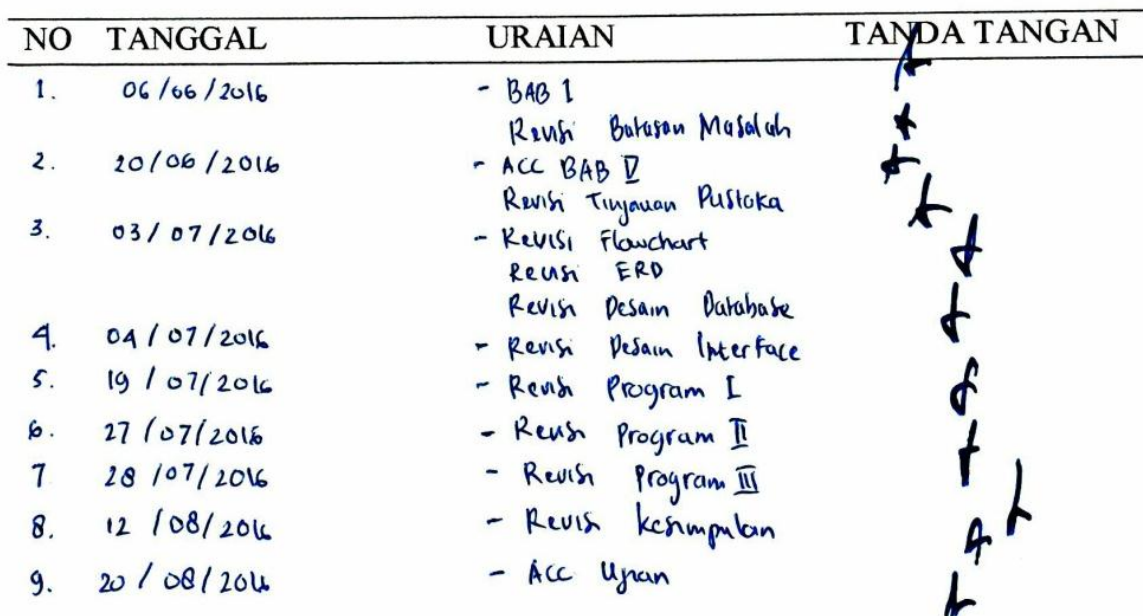 NO TANGGAL URAIAN TANDA TANGAN
1. 06/06/2016 - BAB I
Revisi Batasan Masalah
2. 20/06/2016 - ACC BAB V
Revisi Tinjauan Pustaka
3. 03/07/2016 - Revisi Flowchart
Revisi ERD
Revisi Desain Database
4. 04/07/2016 - Revisi Desain Interface
5. 19/07/2016 - Revisi Program I
6. 27/07/2016 - Revisi Program II
7 28/07/2016 - Revisi Program III
8. 12/08/2016 - Revisi kesimpulan
9. 20/08/2016 - Acc Ujian